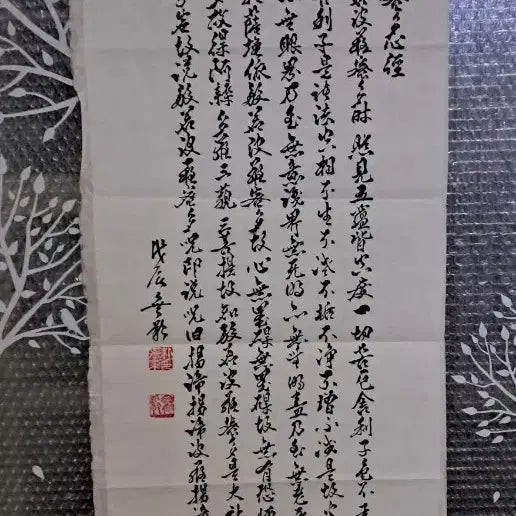 多心經
若波羅蜜多時照見五蘊皆空度一切苦厄舍利子色不
利子是諸法空相不生不滅不垢不淨不增不減是故空
無眼界乃至無意識界無無明亦無無明盡乃至無老
薩埵依般若波羅蜜多故心無罣礙無罣礙故無有恐怖
多故得阿耨多羅三藐三菩提故知般若波羅蜜多是大神
不虛故說般若波羅蜜多呪卽說呪曰揭諦揭諦波羅揭諦
戊辰